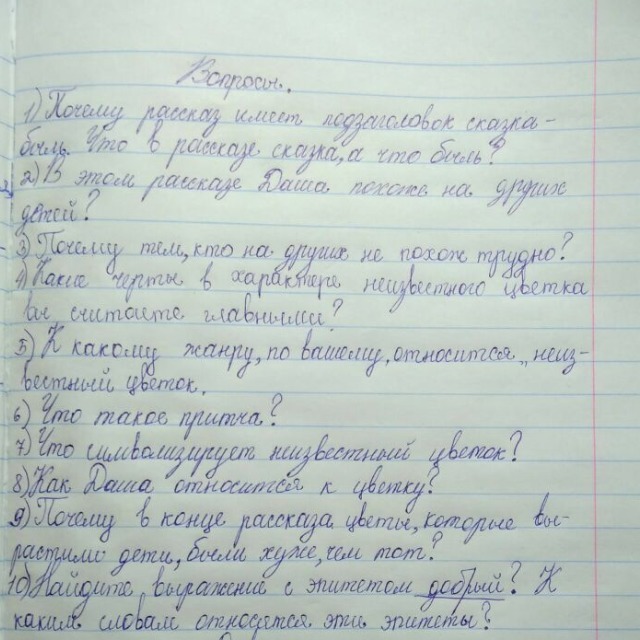 Вопросы.
1) Почему рассказ имеет подзаголовок сказка-
быль. Что в рассказе сказка, а что быль?
2) В этом рассказе Даша похожа на других
детей?
3) Почему тем, кто на других не похож трудно?
4) Какие черты в характере неизвестного цветка
вы считаете главными?
5) К какому жанру, по вашему, относится „неиз-
вестный цветок.
6) Что такое притча?
7) Что символизирует неизвестный цветок?
8) Как Даша относится к цветку?
9) Почему в конце рассказа цветы, которые вы-
растили дети, были хуже, чем тот?
10) Найдите выражение с эпитетом добрый? К
каким словам относятся эти эпитеты?